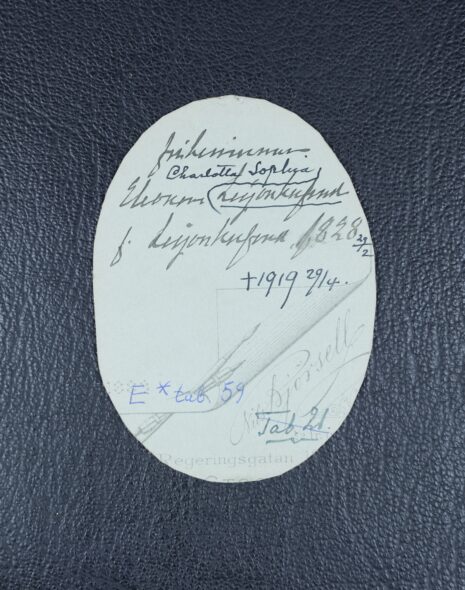 friherrinnan
Charlotta Sophia
Eleonora Leijonhufvud
f. Leijonhufvud 1828 29/2
+1919 29/4.
E * tab. 59
Björsell
Tab 21.
Regeringsgatan